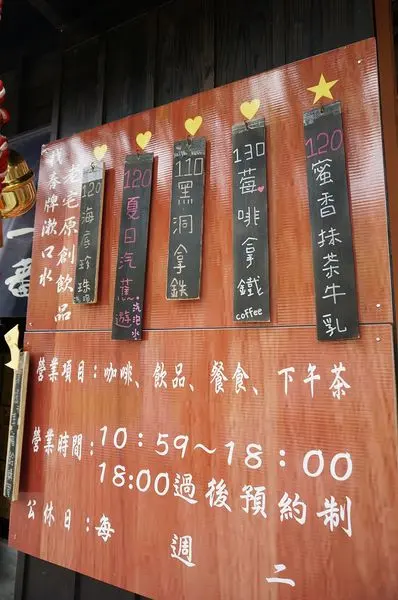 120
蜜香抹茶牛乳
130
莓啡拿鐵
coffee
110
黑洞拿鉄
120
夏日汽蕉遊
汽泡水
120
海底珍珠
老宅原創飲品
牌漱口水
營業項目：咖啡、飲品、餐食、下午茶
營業時間：10：59～18：00
18:00過後預約制
公休日：每週二